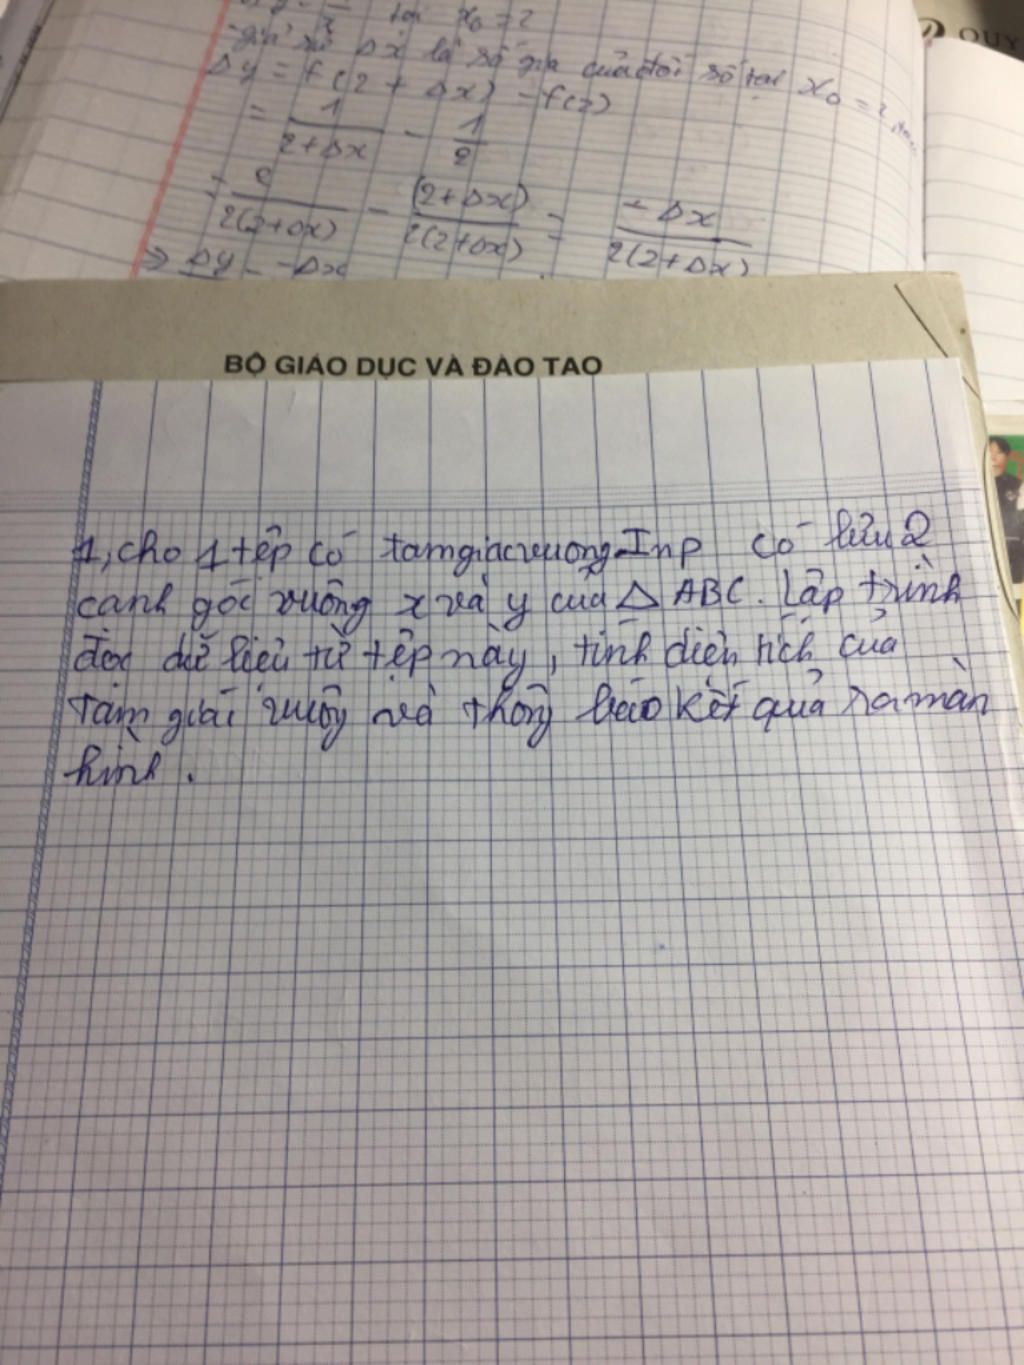 x₀ = 2
giả sử Δx là số gia của đối số tại x₀ = 2
Δy = f(2 + Δx) - f(2)
= 1/(2+Δx) - 1/2
= 2/(2(2+Δx)) - (2+Δx)/(2(2+Δx)) = -Δx/(2(2+Δx))
⇒ Δy - -Δx
QUY
BỘ GIÁO DỤC VÀ ĐÀO TẠO
1, cho 1 tệp có tamgiacvuong.Inp có lưu 2
cạnh góc vuông x và y của Δ ABC. Lập trình
đọc dữ liệu từ tệp này, tính diện tích của
tam giác vuông và thông báo kết quả ra màn
hình.